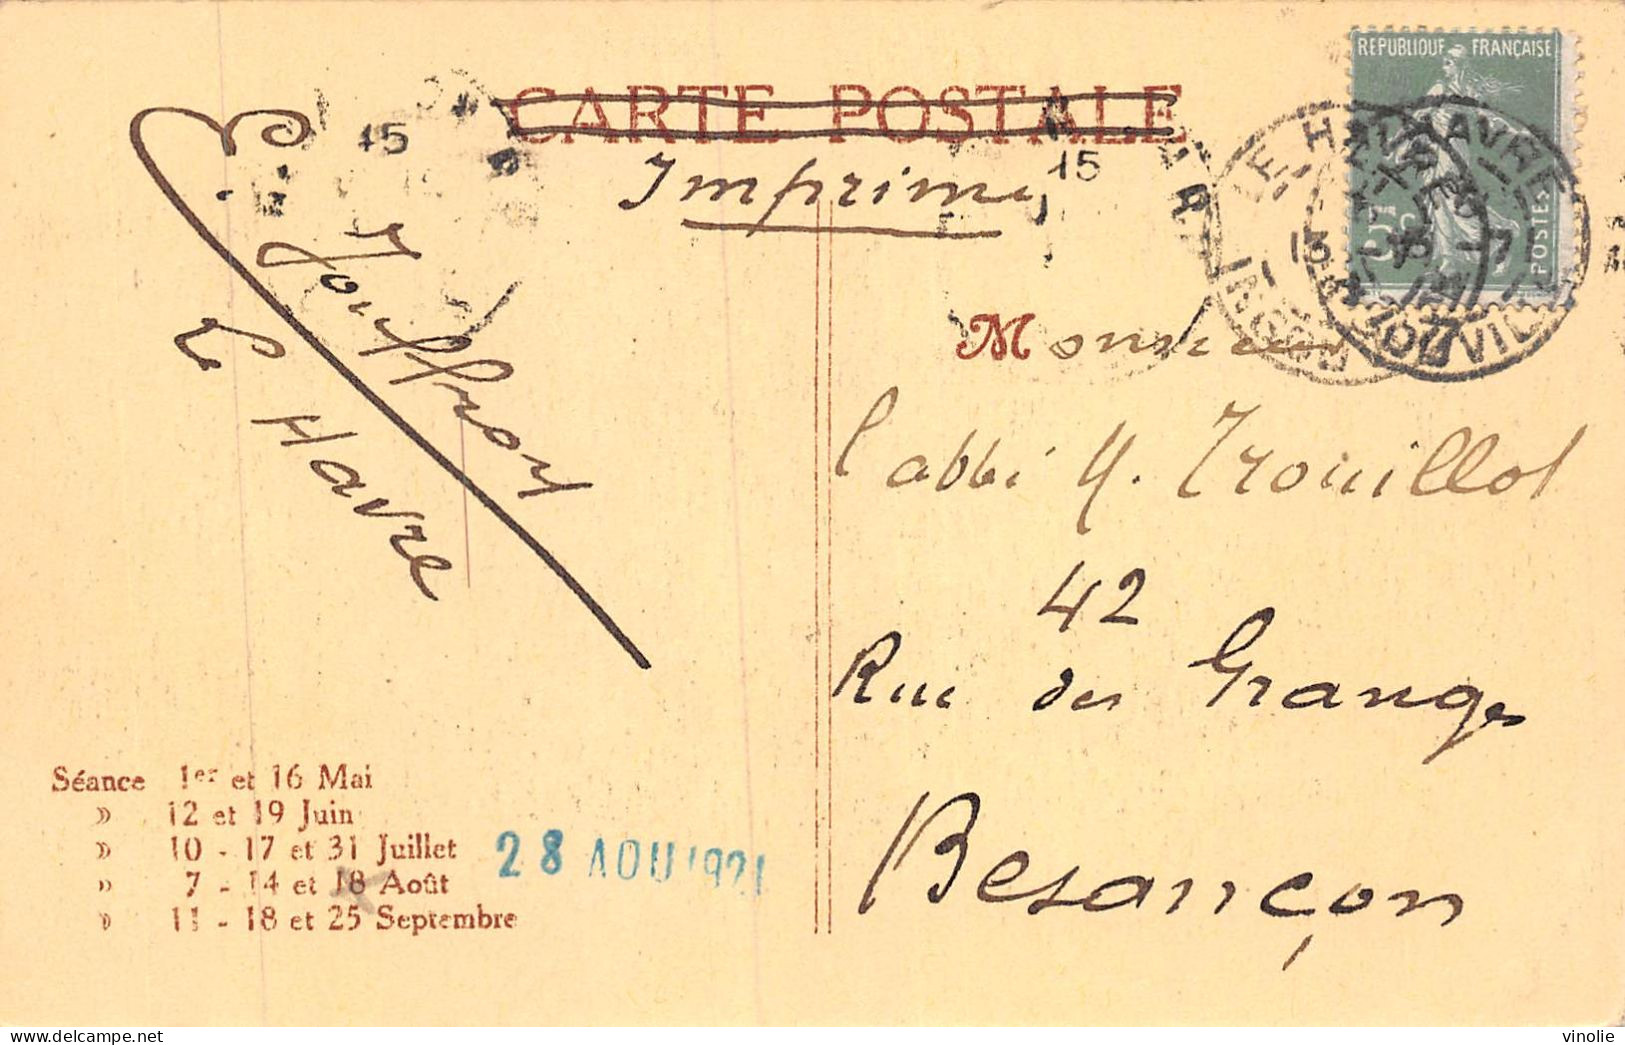 CARTE POSTALE
Imprimé
REPUBLIQUE FRANÇAISE
15c
POSTES
LE HAVRE
15
15
E. Jouffroy
Le Havre
Monsieur
l'abbé H. Trouillot
42
Rue des Granges
Besançon
Séance 1er et 16 Mai
» 12 et 19 Juin
» 10 - 17 et 31 Juillet
» 7 - 14 et 18 Août
» 11 - 18 et 25 Septembre
28 AOU 1921
vinolie